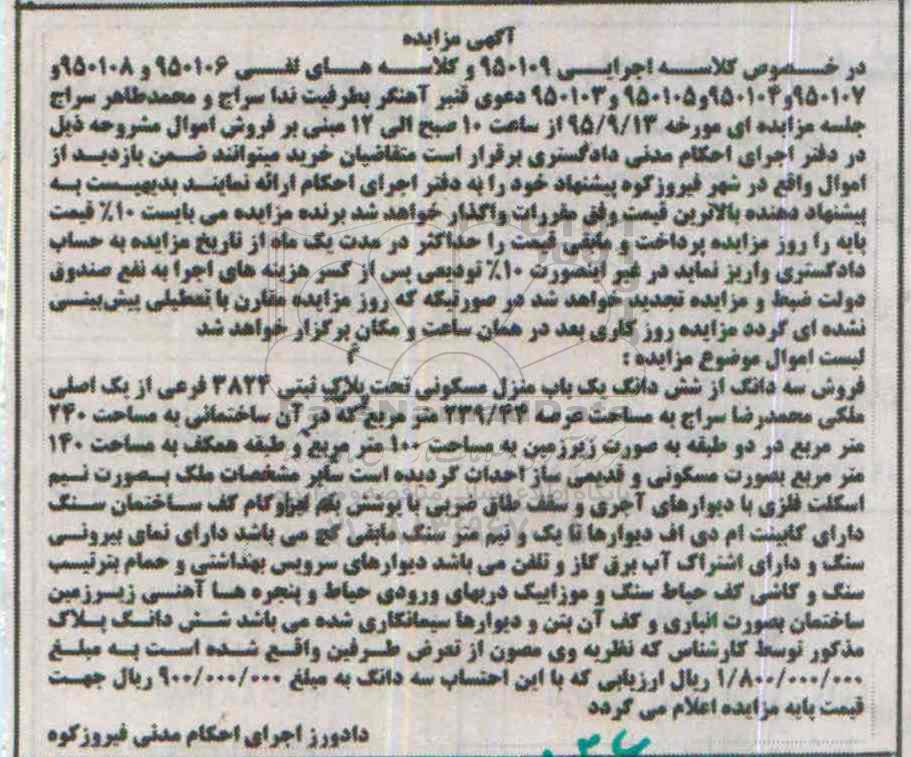 آگهی مزایده
در خصوص کلاسه اجرایی ۹۵۰۱۰۹ و کلاسه های لفی ۹۵۰۱۰۶ و ۹۵۰۱۰۸و
۹۵۰۱۰۷و۹۵۰۱۰۴و۹۵۰۱۰۵ و۹۵۰۱۰۳ دعوی قنبر آهنگر بطرفیت ندا سراج و محمدطاهر سراج
جلسه مزایده ای مورخه ۹۵/۹/۱۳ از ساعت ۱۰ صبح الی ۱۲ مبنی بر فروش اموال مشروحه ذیل
در دفتر اجرای احکام مدنی دادگستری برقرار است متقاضیان خرید میتوانند ضمن بازدید از
اموال واقع در شهر فیروزکوه پیشنهاد خود را به دفتر اجرای احکام ارائه نمایند بدیهیست به
پیشنهاد دهنده بالاترین قیمت وفق مقررات واگذار خواهد شد برنده مزایده می بایست ۱۰% قیمت
پایه را روز مزایده پرداخت و مابقی قیمت را حداکثر در مدت یک ماه از تاریخ مزایده به حساب
دادگستری واریز نماید در غیر اینصورت ۱۰% تودیعی پس از کسر هزینه های اجرا به نفع صندوق
دولت ضبط و مزایده تجدید خواهد شد در صورتیکه که روز مزایده مقارن با تعطیلی پیش‌بینی
نشده ای گردد مزایده روز کاری بعد در همان ساعت و مکان برگزار خواهد شد
لیست اموال موضوع مزایده :
فروش سه دانگ از شش دانگ یک باب منزل مسکونی تحت پلاک ثبتی ۳۸۲۴ فرعی از یک اصلی
ملکی محمدرضا سراج به مساحت عرصه ۲۳۹/۴۴ متر مربع که در آن ساختمانی به مساحت ۲۴۰
متر مربع در دو طبقه به صورت زیرزمین به مساحت ۱۰۰ متر مربع و طبقه همکف به مساحت ۱۴۰
متر مربع بصورت مسکونی و قدیمی ساز احداث گردیده است سایر مشخصات ملک بصورت نیم
اسکلت فلزی با دیوارهای آجری و سقف طاق ضربی با پوشش بام ایزوگام کف ساختمان سنگ
دارای کابینت ام دی اف دیوارها تا یک و نیم متر سنگ مابقی گچ می باشد دارای نمای بیرونی
سنگ و دارای اشتراک آب برق گاز و تلفن می باشد دیوارهای سرویس بهداشتی و حمام بترتیب
سنگ و کاشی کف حیاط سنگ و موزاییک دربهای ورودی حیاط و پنجره ها آهنی زیرزمین
ساختمان بصورت انباری و کف آن بتن و دیوارها سیمانکاری شده می باشد شش دانگ پلاک
مذکور توسط کارشناس که نظریه وی مصون از تعرض طرفین واقع شده است به مبلغ
۱/۸۰۰/۰۰۰/۰۰۰ ریال ارزیابی که با این احتساب سه دانگ به مبلغ ۹۰۰/۰۰۰/۰۰۰ ریال جهت
قیمت پایه مزایده اعلام می گردد
دادورز اجرای احکام مدنی فیروزکوه